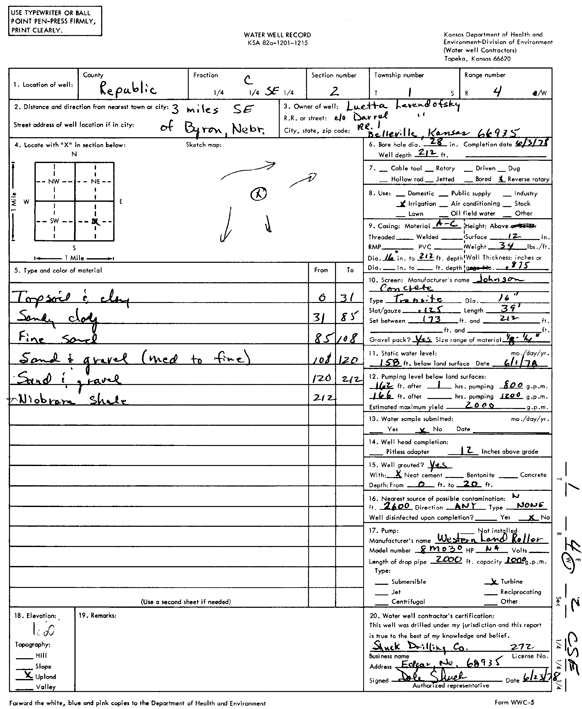 USE TYPEWRITER OR BALL
POINT PEN-PRESS FIRMLY,
PRINT CLEARLY.
WATER WELL RECORD
KSA 82a-1201-1215
Kansas Department of Health and
Environment-Division of Environment
(Water well Contractors)
Topeka, Kansas 66620
1. Location of well:
County
Republic
Fraction
C
1/4 1/4 SE 1/4
Section number
2
Township number
T 1 S
Range number
R 4 E/W
2. Distance and direction from nearest town or city: 3 miles SE
Street address of well location if in city: of Byron, Nebr.
3. Owner of well: Luetta
R.R. or street: c/o Darrel "
City, state, zip code: RR. 1
Belleville, Kansas 66935
4. Locate with "X" in section below:
N
NW NE
W E
SW X
S
1 Mile
1 Mile
Sketch map:
6. Bore hole dia. 28 in. Completion date 6/3/78
Well depth 212 ft.
7. Cable tool Rotary Driven Dug
Hollow rod Jetted Bored X Reverse rotary
8. Use: Domestic Public supply Industry
X Irrigation Air conditioning Stock
Lawn Oil field water Other
9. Casing: Material A-C Height: Above
Threaded Welded Surface 12 in.
RMP PVC Weight 34 lbs./ft.
Dia. 16 in. to 212 ft. depth Wall Thickness: inches or
Dia. in. to ft. depth .875
10. Screen: Manufacturer's name Johnson
Concrete
Type Transite Dia. 16"
Slot/gauze .125 Length 39'
Set between 173 ft. and 212 ft.
ft. and ft.
Gravel pack? Yes Size range of material 1/8-1/4"
5. Type and color of material From To
Topsoil & clay 0 31
Sandy clay 31 85
Fine sand 85 108
Sand & gravel (med to fine) 108 120
Sand & gravel 120 212
Niobrara Shale 212
11. Static water level: mo./day/yr.
158 ft. below land surface Date 6/1/78
12. Pumping level below land surfaces:
162 ft. after 1 hrs. pumping 800 g.p.m.
166 ft. after hrs. pumping 1200 g.p.m.
Estimated maximum yield 2000 g.p.m.
13. Water sample submitted: mo./day/yr.
Yes X No Date
14. Well head completion:
Pitless adapter 12 Inches above grade
15. Well grouted? Yes
With: X Neat cement Bentonite Concrete
Depth: From 0 ft. to 20 ft.
16. Nearest source of possible contamination: N
ft. 2600 Direction ANY Type NONE
Well disinfected upon completion? Yes X No
17. Pump: Not installed
Manufacturer's name Western Land Roller
Model number 8M030 HP NA Volts
Length of drop pipe 2000 ft. capacity 1000 g.p.m.
Type:
Submersible X Turbine
Jet Reciprocating
Centrifugal Other
(Use a second sheet if needed)
18. Elevation:
Topography:
Hill
Slope
X Upland
Valley
19. Remarks:
20. Water well contractor's certification:
This well was drilled under my jurisdiction and this report
is true to the best of my knowledge and belief.
Shuck Drilling Co. 272
Business name License No.
Address Edgar, Ne. 68935
Signed Dale Shuck 6/23/78
Authorized representative
Forward the white, blue and pink copies to the Department of Health and Environment
Form WWC-5
T 1
R 4 E W
Sec 2
CSE
1/4 1/4 1/4